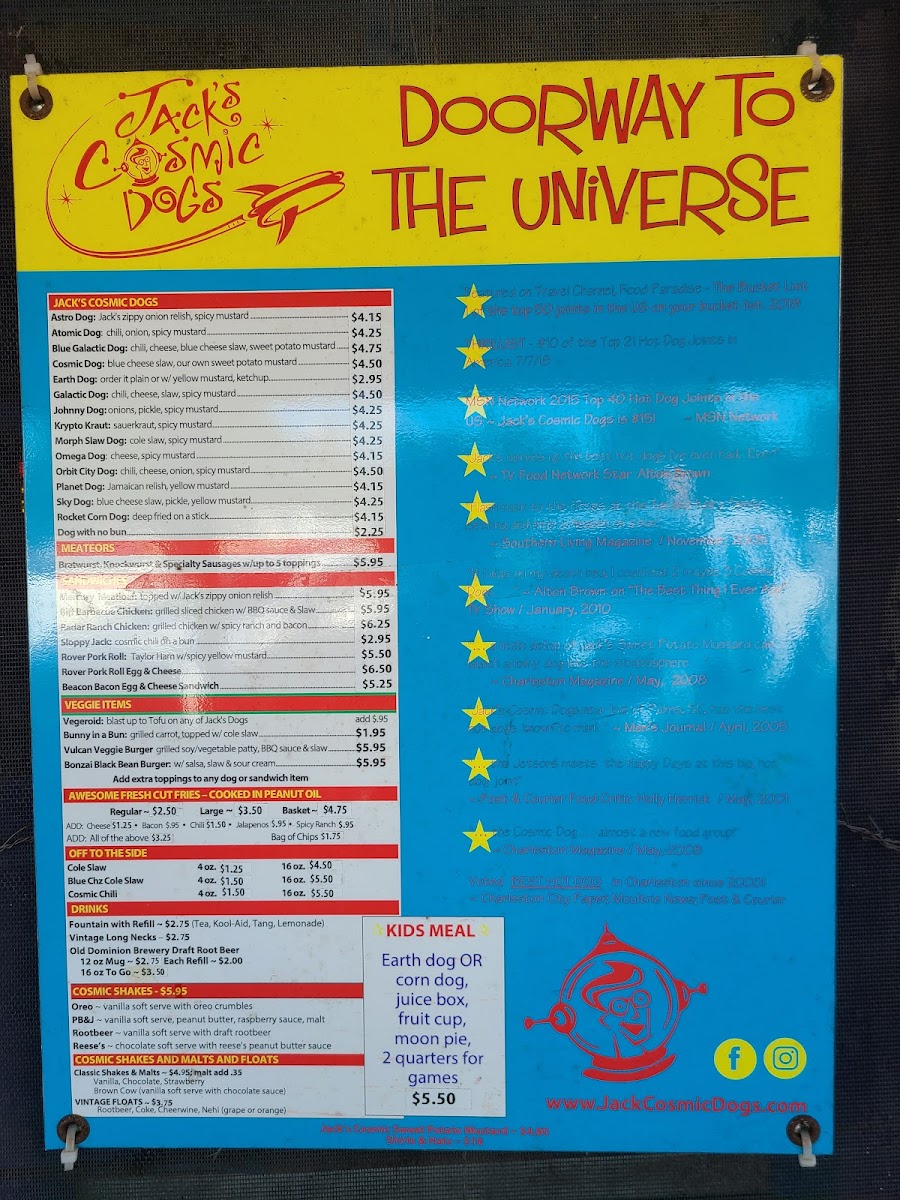 JACK'S
COSMIC
DOGS
DOORWAY TO
THE UNIVERSE
JACK'S COSMIC DOGS
Astro Dog: Jack's zippy onion relish, spicy mustard $4.15
Atomic Dog: chili, onion, spicy mustard $4.25
Blue Galactic Dog: chili, cheese, blue cheese slaw, sweet potato mustard $4.75
Cosmic Dog: blue cheese slaw, our own sweet potato mustard $4.50
Earth Dog: order it plain or w/ yellow mustard, ketchup $2.95
Galactic Dog: chili, cheese, slaw, spicy mustard $4.50
Johnny Dog: onions, pickle, spicy mustard $4.25
Krypto Kraut: sauerkraut, spicy mustard $4.25
Morph Slaw Dog: cole slaw, spicy mustard $4.25
Omega Dog: cheese, spicy mustard $4.15
Orbit City Dog: chili, cheese, onion, spicy mustard $4.50
Planet Dog: Jamaican relish, yellow mustard $4.15
Sky Dog: blue cheese slaw, pickle, yellow mustard $4.25
Rocket Corn Dog: deep fried on a stick $4.15
Dog with no bun $2.25
MEATEORS
Bratwurst, Knockwurst & Specialty Sausages w/up to 5 toppings $5.95
SANDWICHES
Mercury Meatloaf: topped w/ Jack's zippy onion relish $5.95
Barbecue Chicken: grilled sliced chicken w/ BBQ sauce & Slaw $5.95
Radar Ranch Chicken: grilled chicken w/ spicy ranch and bacon $6.25
Sloppy Jack: cosmic chili on a bun $2.95
Rover Pork Roll: Taylor Ham w/spicy yellow mustard $5.50
Rover Pork Roll Egg & Cheese $6.50
Beacon Bacon Egg & Cheese Sandwich $5.25
VEGGIE ITEMS
Vegeroid: blast up to Tofu on any of Jack's Dogs add $.95
Bunny in a Bun: grilled carrot, topped w/ cole slaw $1.95
Vulcan Veggie Burger grilled soy/vegetable patty, BBQ sauce & slaw $5.95
Bonzai Black Bean Burger: w/ salsa, slaw & sour cream $5.95
Add extra toppings to any dog or sandwich item
AWESOME FRESH CUT FRIES – COOKED IN PEANUT OIL
Regular ~ $2.50 Large ~ $3.50 Basket ~ $4.75
ADD: Cheese $1.25 • Bacon $.95 • Chili $1.50 • Jalapenos $.95 • Spicy Ranch $.95
ADD: All of the above $3.25 Bag of Chips $1.75
OFF TO THE SIDE
Cole Slaw 4 oz. $1.25 16 oz. $4.50
Blue Chz Cole Slaw 4 oz. $1.50 16 oz. $5.50
Cosmic Chili 4 oz. $1.50 16 oz. $5.50
DRINKS
Fountain with Refill ~ $2.75 (Tea, Kool-Aid, Tang, Lemonade)
Vintage Long Necks – $2.75
Old Dominion Brewery Draft Root Beer
12 oz Mug ~ $2.75 Each Refill ~ $2.00
16 oz To Go ~ $3.50
COSMIC SHAKES - $5.95
Oreo ~ vanilla soft serve with oreo crumbles
PB&J ~ vanilla soft serve, peanut butter, raspberry sauce, malt
Rootbeer ~ vanilla soft serve with draft rootbeer
Reese's ~ chocolate soft serve with reese's peanut butter sauce
COSMIC SHAKES AND MALTS AND FLOATS
Classic Shakes & Malts ~ $4.95; malt add .35
Vanilla, Chocolate, Strawberry
Brown Cow (vanilla soft serve with chocolate sauce)
VINTAGE FLOATS ~ $3.75
Rootbeer, Coke, Cheerwine, Nehi (grape or orange)
KIDS MEAL
Earth dog OR
corn dog,
juice box,
fruit cup,
moon pie,
2 quarters for
games
$5.50
Featured on Travel Channel, Food Paradise - The Bucket List
the top 50 joints in the US on your bucket list.
#10 of the Top 21 Hot Dog Joints in
America 7/7/15
MSN Network 2015 Top 40 Hot Dog Joints in the
US ~ Jack's Cosmic Dogs is #15! ~ MSN Network
hot dogs I've ever had. Ever"
~ TV Food Network Star Alton Brown
~ Southern Living Magazine / November,
~ Alton Brown on "The Best Thing I Ever
TV Show / January, 2010
Sweet Potato Mustard
~ Charleston Magazine / May, 2008
~ Men's Journal / April, 2005
Jetsons meets the Happy Days at this big hot
dog joint"
~ Post & Courier Food Critic Holly Herrick / May, 2001
Cosmic Dog . . . almost a new food group!"
~ Charleston Magazine / May,
Voted BEST HOT DOG in Charleston since 2000!
~ Charleston City Paper, Moultrie News, Post & Courier
www.JackCosmicDogs.com
Jack's Cosmic Sweet Potato Mustard ~